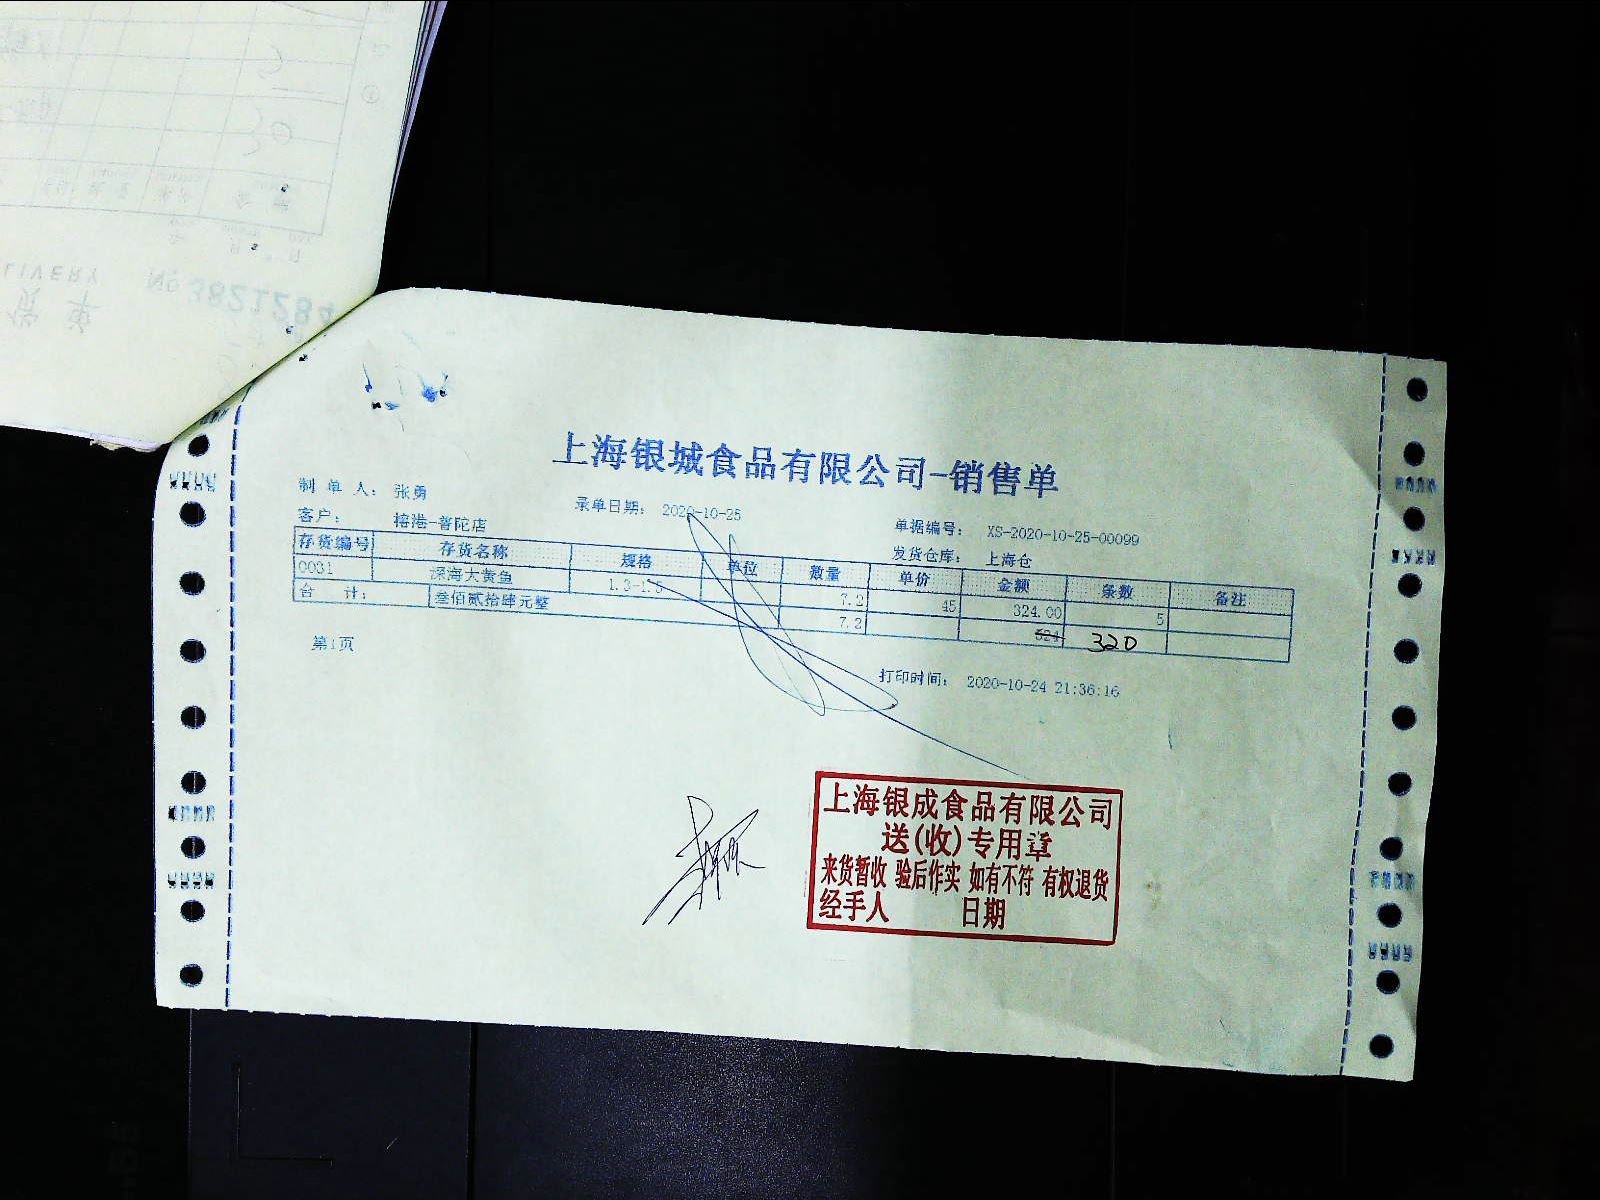 LIVERY
№ 3821284
上海银城食品有限公司-销售单
制 单 人： 张勇
录单日期： 2020-10-25
单据编号： XS-2020-10-25-00099
客户： 榕港-普陀店
发货仓库： 上海仓
存货编号 存货名称 规格 单位 数量 单价 金额 条数 备注
0031 深海大黄鱼 1.3-1.5 7.2 45 324.00 5
合 计： 叁佰贰拾肆元整 7.2 324 320
第1页
打印时间： 2020-10-24 21:36:16
上海银成食品有限公司
送(收)专用章
来货暂收 验后作实 如有不符 有权退货
经手人 日期